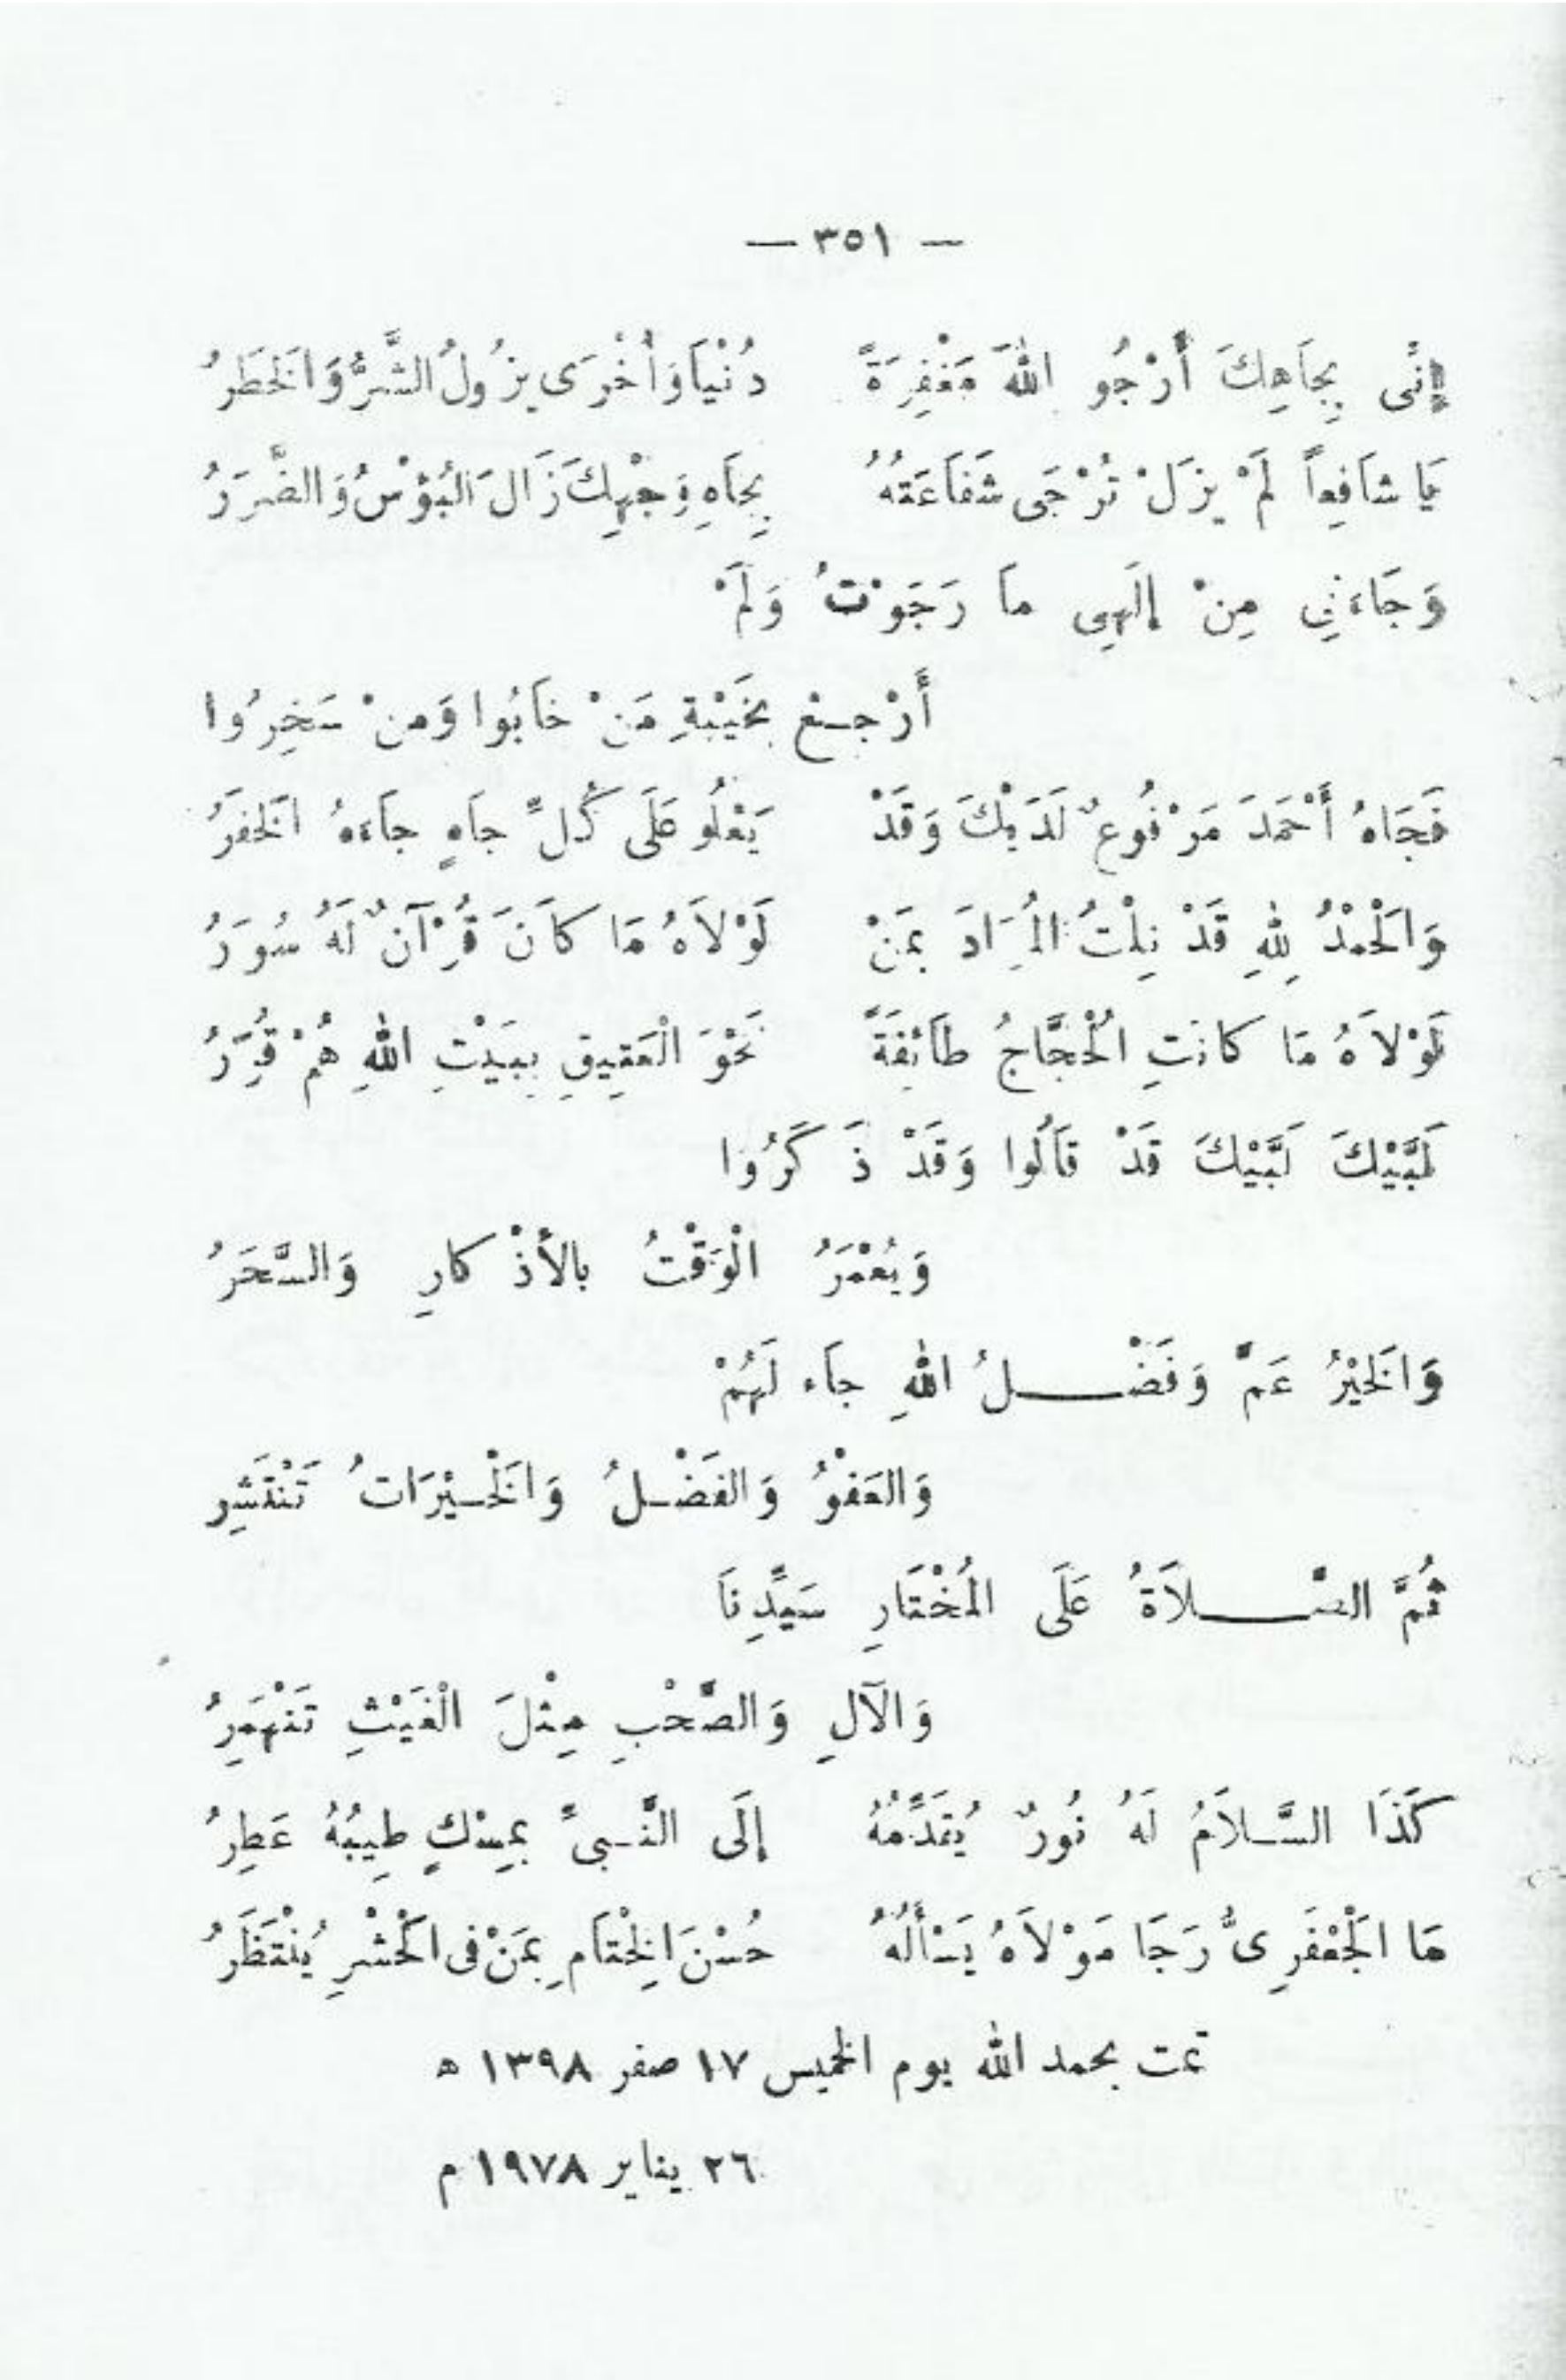 — ٣٥١ —
إِنِّى بِجَاهِكَ أَرْجُو اللهَ مَغْفِرَةً دُنْيَا وَأُخْرَى يزُولُ الشَّرُّ وَالْخَطَرُ
يَا شَافِعاً لَمْ يزَلْ تُرْجَى شَفَاعَتُهُ بِجَاهِ وَجْهِكَ زَالَ الْبُؤْسُ وَالضَّرَرُ
وَجَاءَنِى مِنْ إِلَهِى مَا رَجَوْتُ وَلَمْ
أَرْجِعْ بِخَيْبَةِ مَنْ خَابُوا وَمنْ سَخِرُوا
فَجَاهُ أَحْمَدَ مَرْفُوعٌ لَدَيْكَ وَقَدْ يَعْلُو عَلَى كُلِّ جَاهٍ جَاءَهُ الْخَفَرُ
وَالْحَمْدُ لِلهِ قَدْ نِلْتُ الْمُرَادَ بِمَنْ لَوْلَاهُ مَا كَانَ قُرْآنٌ لَهُ سُوَرُ
لَوْلَاهُ مَا كَانَتِ الْحُجَّاجُ طَائِفَةً نَحْوَ الْعَقِيقِ بِبَيْتِ اللهِ هُمْ قُرَرُ
لَبَّيْكَ لَبَّيْكَ قَدْ قَالُوا وَقَدْ ذَكَرُوا
وَيُعْمَرُ الْوَقْتُ بالأَذْكارِ وَالسَّحَرُ
وَالْخَيْرُ عَمَّ وَفَضْلُ اللهِ جَاء لَهُمْ
وَالعَفْوُ وَالفَضْلُ وَالْخَيْرَاتُ تَنْتَشِر
ثُمَّ الصَّلاَةُ عَلَى الْمُخْتَارِ سَيِّدِنَا
وَالْآلِ وَالصَّحْبِ مِثْلَ الْغَيْثِ تَنْهَمِرُ
كَذَا السَّلاَمُ لَهُ نُورٌ يُقَدِّمُهُ إِلَى النَّبىِّ بِمِسْكٍ طِيبُهُ عَطِرُ
مَا الْجَعْفَرِىُّ رَجَا مَوْلاَهُ يَسْأَلُهُ حُسْنَ الْخِتَامِ بِمَنْ فى الْحَشْرِ يُنْتَظَرُ
تمت بحمد الله يوم الخميس ١٧ صفر ١٣٩٨ ه
٢٦ يناير ١٩٧٨ م